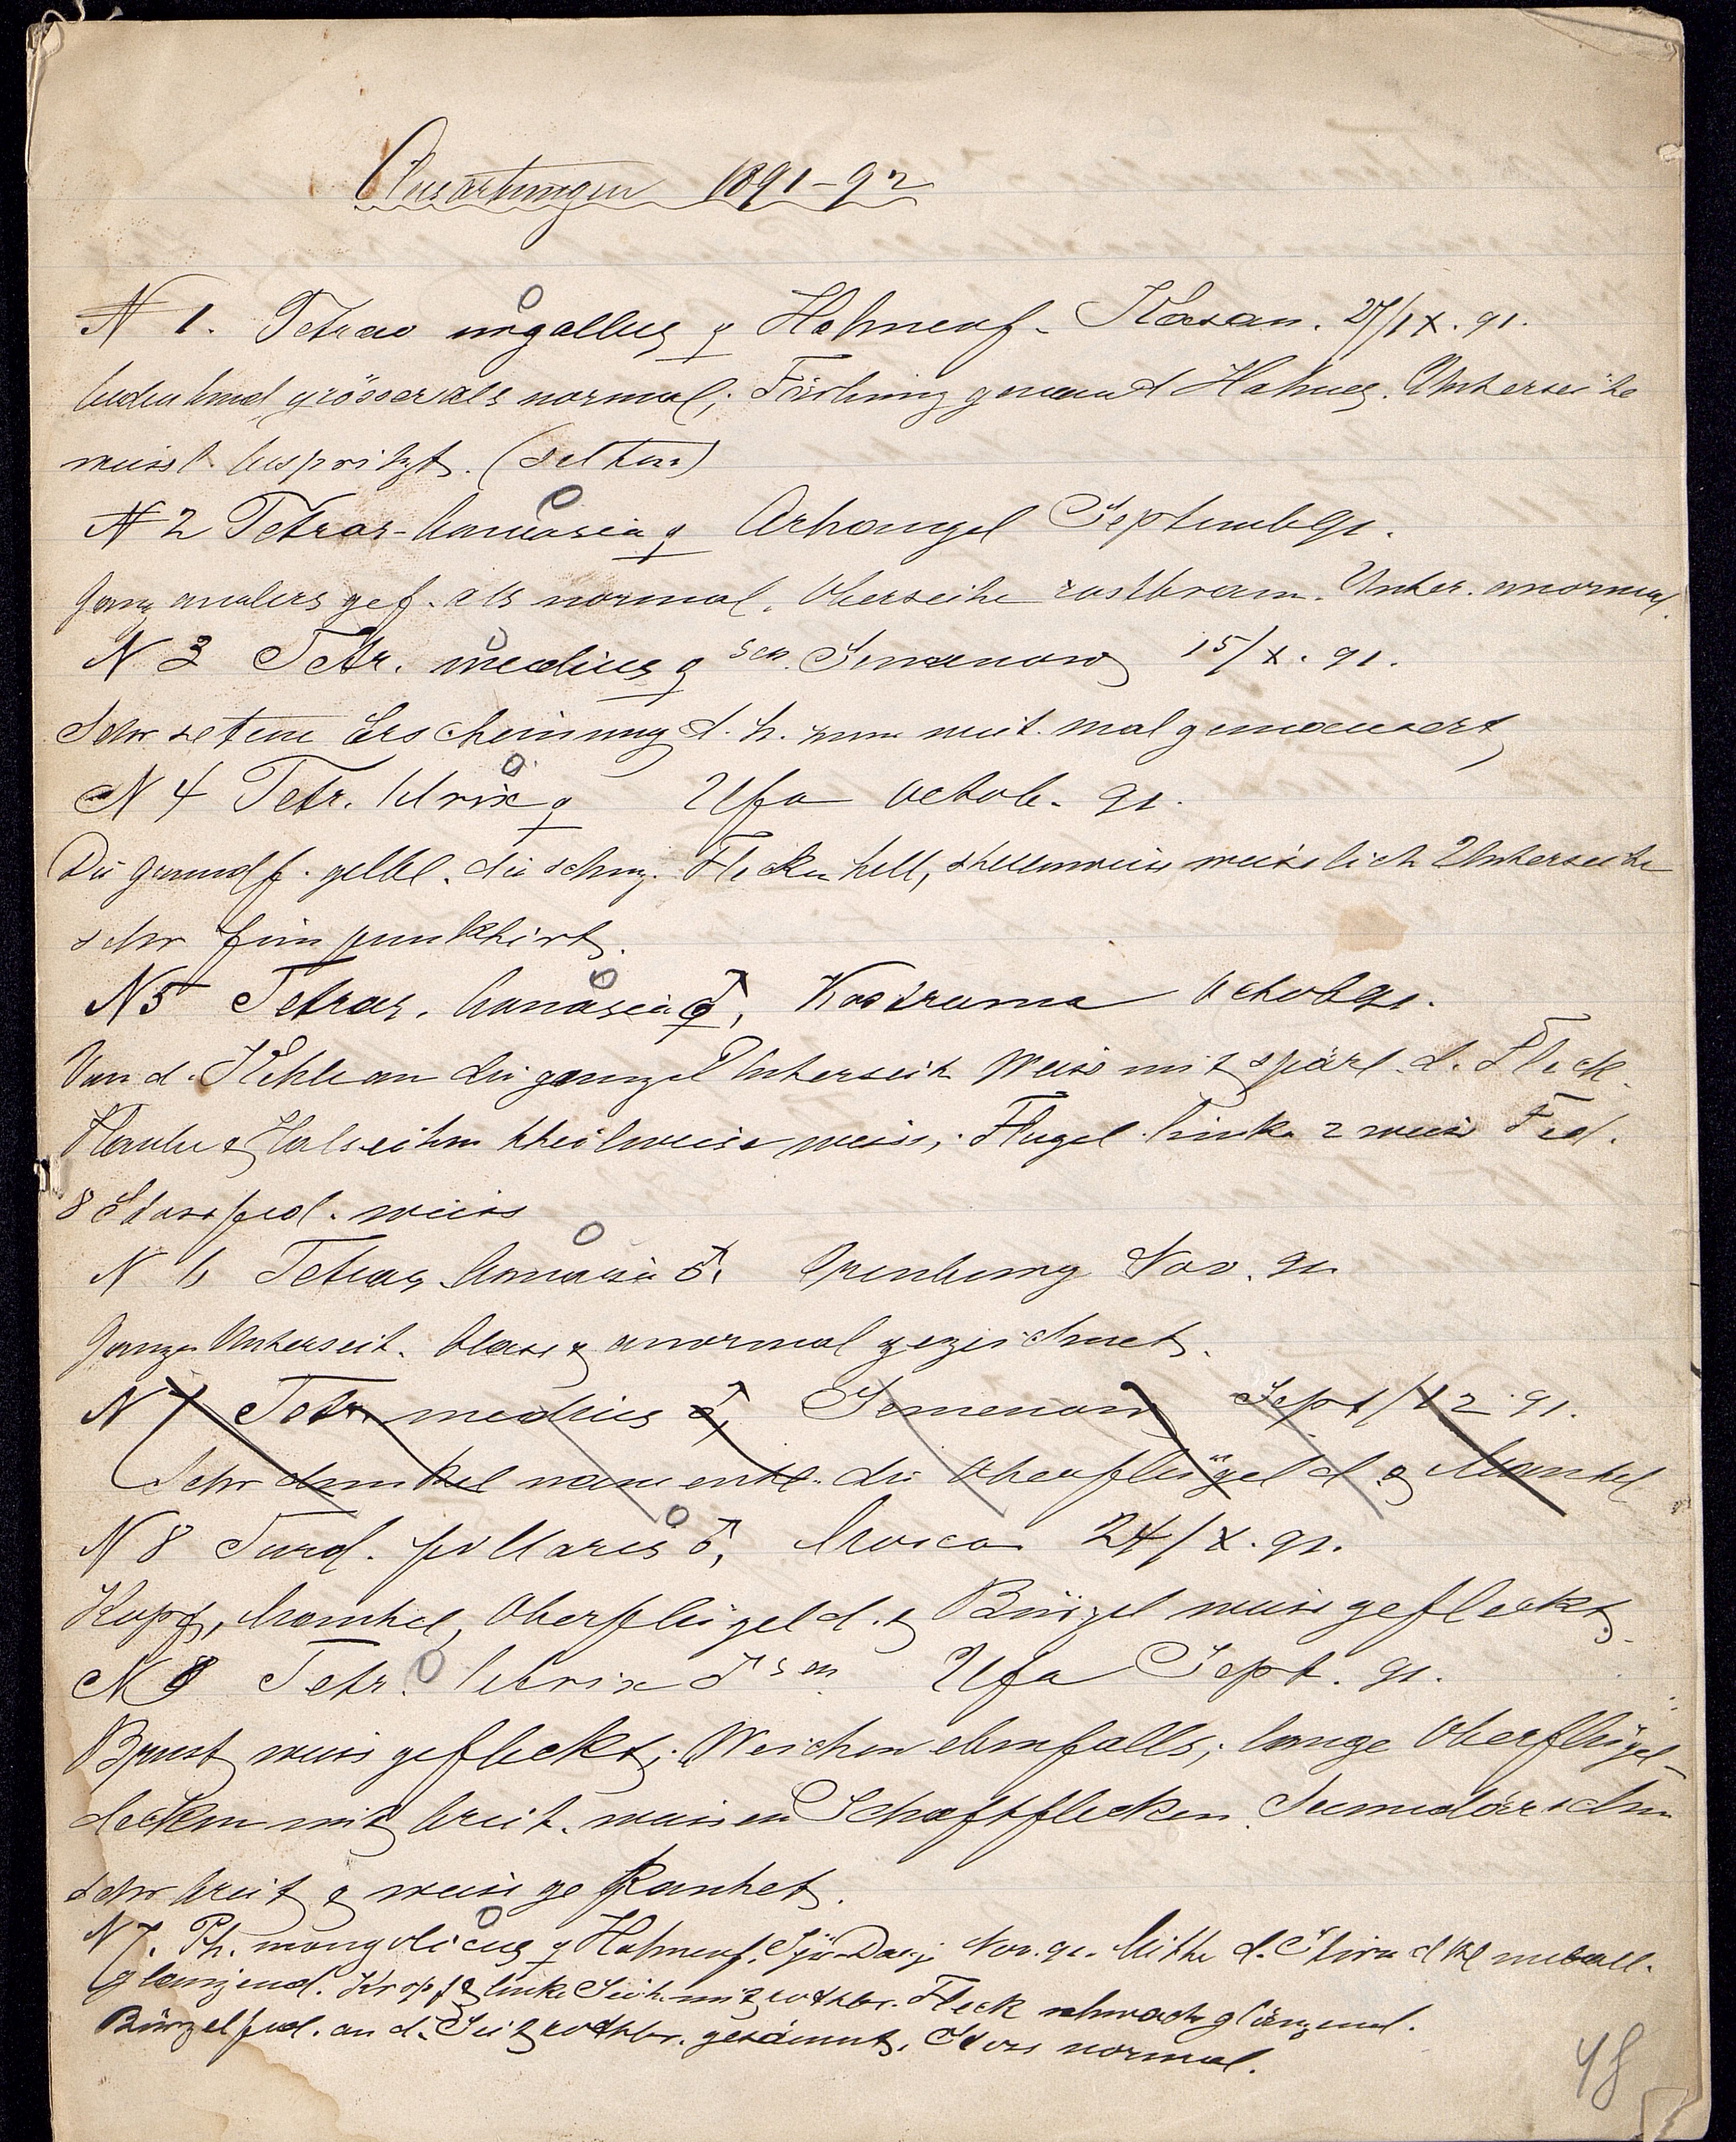 Ausartungen 1891-92
N 1. Tetrao urogallus ♀ Hahnenf. Kasan. 27/IX. 91.
bedeutend grösser als normal; Färbung genau d Hahnes. Unterseite
weiss bespritzt. (selten)
N 2 Tetras-bonasia ♀ Arhangel Septemb 91.
Ganz anders gef. als normal. Oberseite rostbraun. Unter. anormal.
N 3 Tetr. medius ♀ sen. Semenow 15/X. 91.
Sehr seltene Erscheinung d. h. zum mal gemausert
N 4 Tetr. tetrix ♀ Ufa Octob. 91.
Die Grundf. gelbl. die schwz. Flecken hell, stellenweise weisslich Unterseite
sehr fein punktirt.
N 5 Tetras. bonasia ♂, Kostroma Octob 91.
Von d. Kehle an die ganze Unterseite weiss mit spärl. d. Fleck.
Haube & Halsseiten theilweise weiss; Flügel links 2 weisse Fed.
8 Stossfed. weiss
N 6 Tetras bonasia ♂, Orenburg Nov. 91
Ganze Unterseit. blass & anormal gezeichnet.
N 7 Tetr. medius ♂, Semenow Sept/12 91.
Sehr dunkel namentl. die Oberflügeld. & Mantel
N 8 Turd. pillaris ♂, Mosca 24/X. 91.
Kopf, Mantel, Oberflügeld. & Bürzel weiss gefleckt.
N 8 Tetr. tetrix ♂ sen Ufa Sept. 91.
Brust weiss gefleckt; Weichen ebenfalls; lange Oberflügel-
decken mit breit. weissen Schaftflecken. Secundärschw
sehr breit & weiss gekantet.
N 7. Ph. mongolicus ♀ Hahnenf. Nov. 91. Mitte d. Stirn dkl metall.
glänzend. Kropf & linke Seite mit rothbr. Fleck schwach glänzend.
Bürzelfed. an d. Seit rothbr. gesäumt. Stoss normal.
48